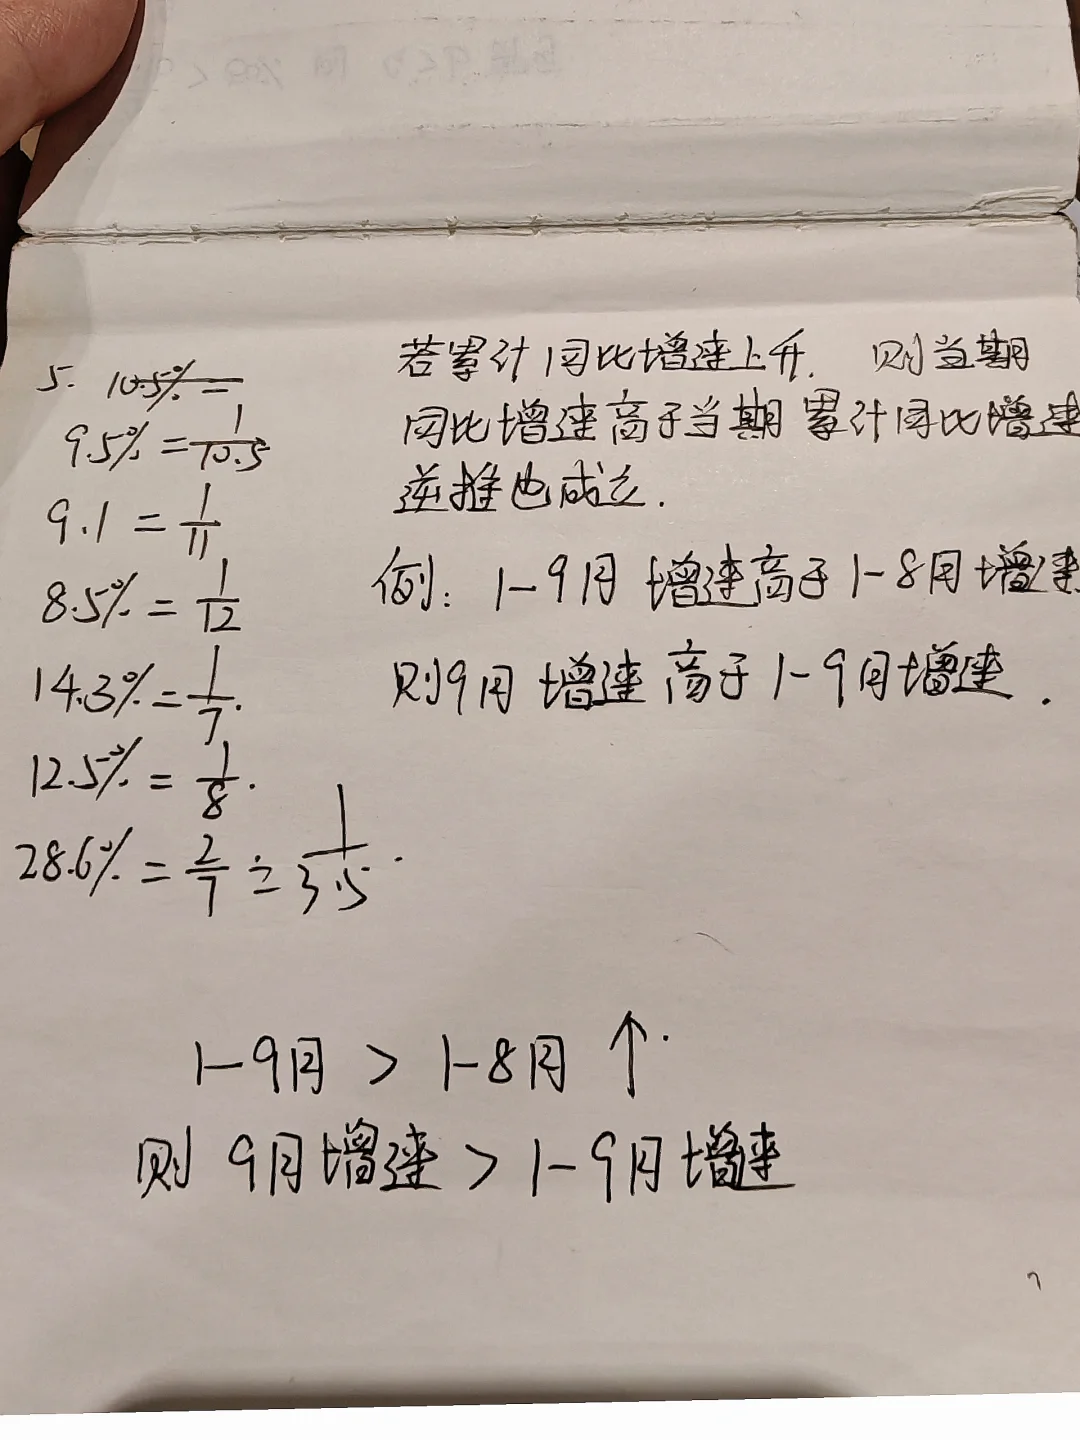 5. 10.5% =
9.5% = 1/10.5
9.1 = 1/11
8.5% = 1/12
14.3% = 1/7.
12.5% = 1/8.
28.6% = 2/7 ≐ 1/3.5.
若累计同比增速上升. 则当期
同比增速高于当期累计同比增速
逆推也成立.
例: 1-9月 增速高于1-8月增速
则9月 增速 高于1-9月增速.
1-9月 > 1-8月 ↑.
则 9月增速 > 1-9月增速